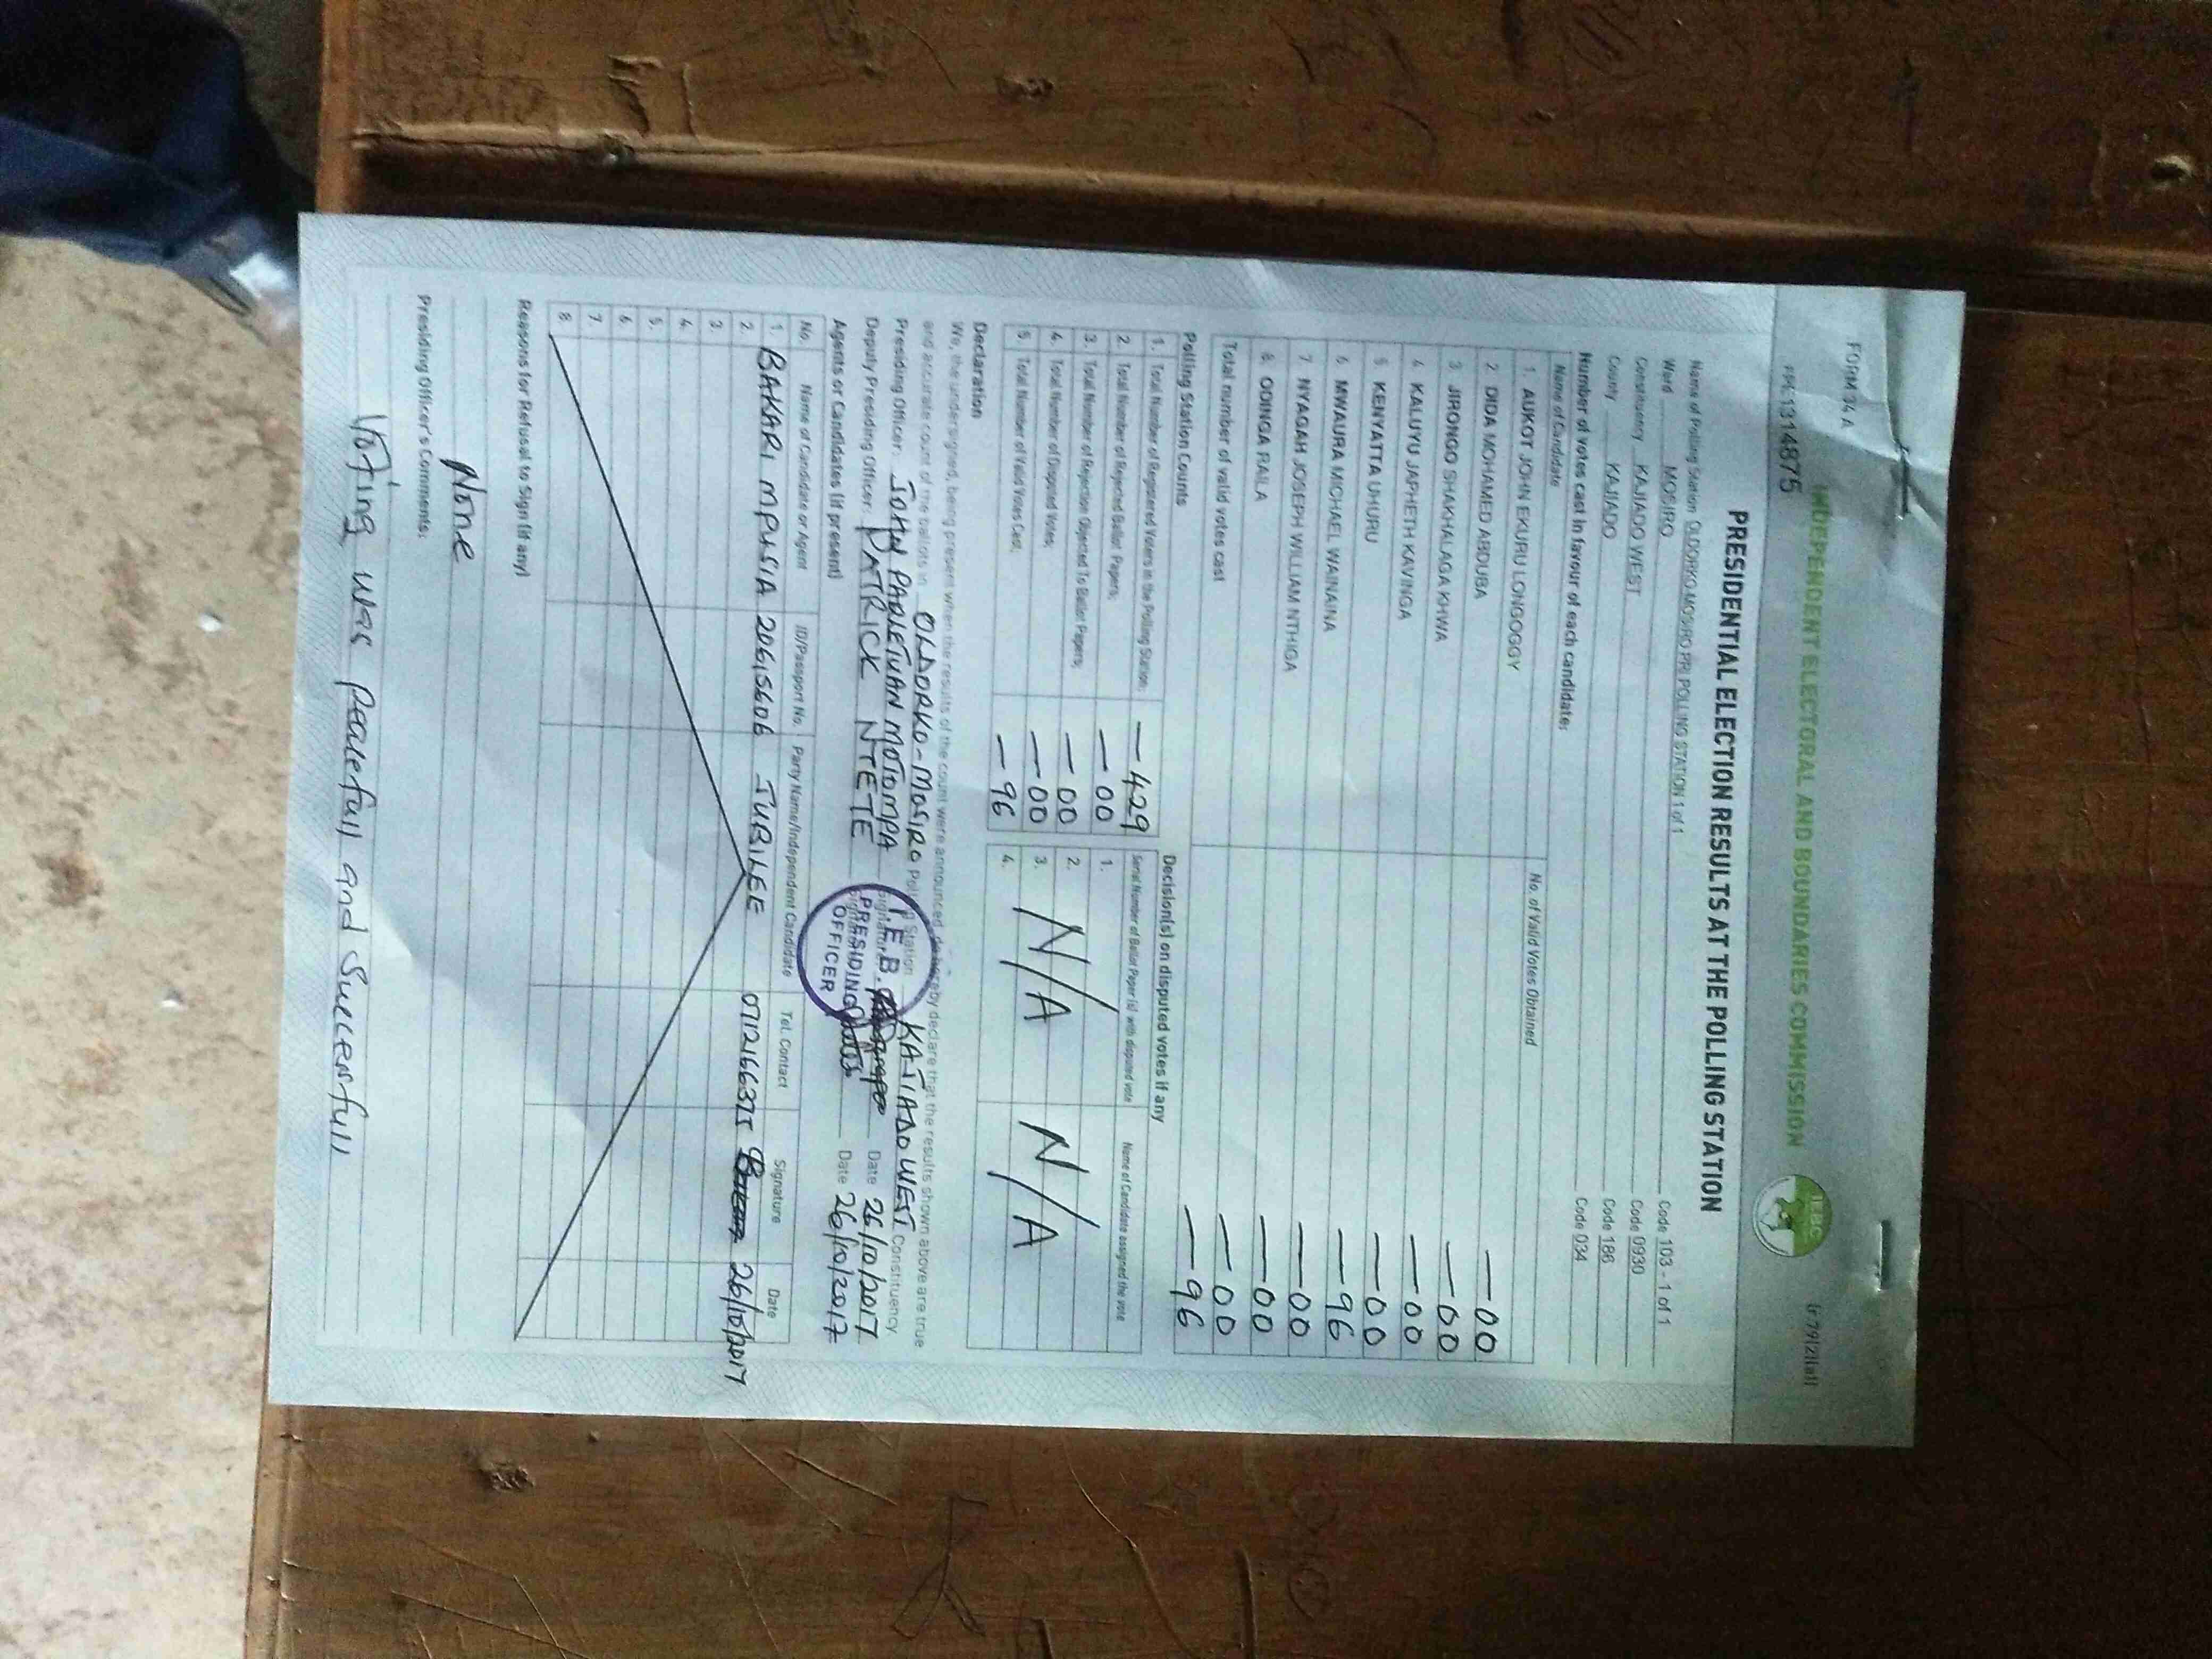 FORM 34A
(r.79(2)(a))
INDEPENDENT ELECTORAL AND BOUNDARIES COMMISSION
IEBC
PRESIDENTIAL ELECTION RESULTS AT THE POLLING STATION
Name of Polling Station OLDORKO-MOSIRO PRI POLLING STATION 1 of 1 Code 103 - 1 of 1
Ward MOSIRO Code 0930
Constituency KAJIADO WEST Code 186
County KAJIADO Code 034
Number of votes cast in favour of each candidate:
Name of Candidate No. of Valid Votes Obtained
1. AUKOT JOHN EKURU LONGOGGY — 00
2. DIDA MOHAMED ABDUBA — 00
3. JIRONGO SHAKHALAGA KHWA — 00
4. KALUYU JAPHETH KAVINGA — 00
5. KENYATTA UHURU — 96
6. MWAURA MICHAEL WAINAINA — 00
7. NYAGAH JOSEPH WILLIAM NTHIGA — 00
8. ODINGA RAILA — 00
Total number of valid votes cast — 96
Polling Station Counts
1. Total Number of Registered Voters in the Polling Station; — 429
2. Total Number of Rejected Ballot Papers; — 00
3. Total Number of Rejection Objected To Ballot Papers; — 00
4. Total Number of Disputed Votes; — 00
5. Total Number of Valid Votes Cast; — 96
Decision(s) on disputed votes if any
Serial Number of Ballot Paper (s) with disputed vote Name of Candidate assigned the vote
1.
2.
3.
4.
N/A N/A
Declaration
We, the undersigned, being present when the results of the count were announced, do hereby declare that the results shown above are true
and accurate count of the ballots in OLDORKO-MOSIRO Polling Station KAJIADO WEST Constituency
Presiding Officer: JOHN MOTOMPA Signature Date 26/10/2017
Deputy Presiding Officer: PATRICK NTETE Signature Date 26/10/2017
I.E.B.C
PRESIDING
OFFICER
Agents or Candidates (if present)
No. Name of Candidate or Agent ID/Passport No. Party Name/Independent Candidate Tel. Contact Signature Date
1. BAKARI MPUSIA 20615606 JUBILEE 0712166375 26/10/2017
2.
3.
4.
5.
6.
7.
8.
Reasons for Refusal to Sign (if any)
None
Presiding Officer's Comments:
Voting was peacefull and Successfull